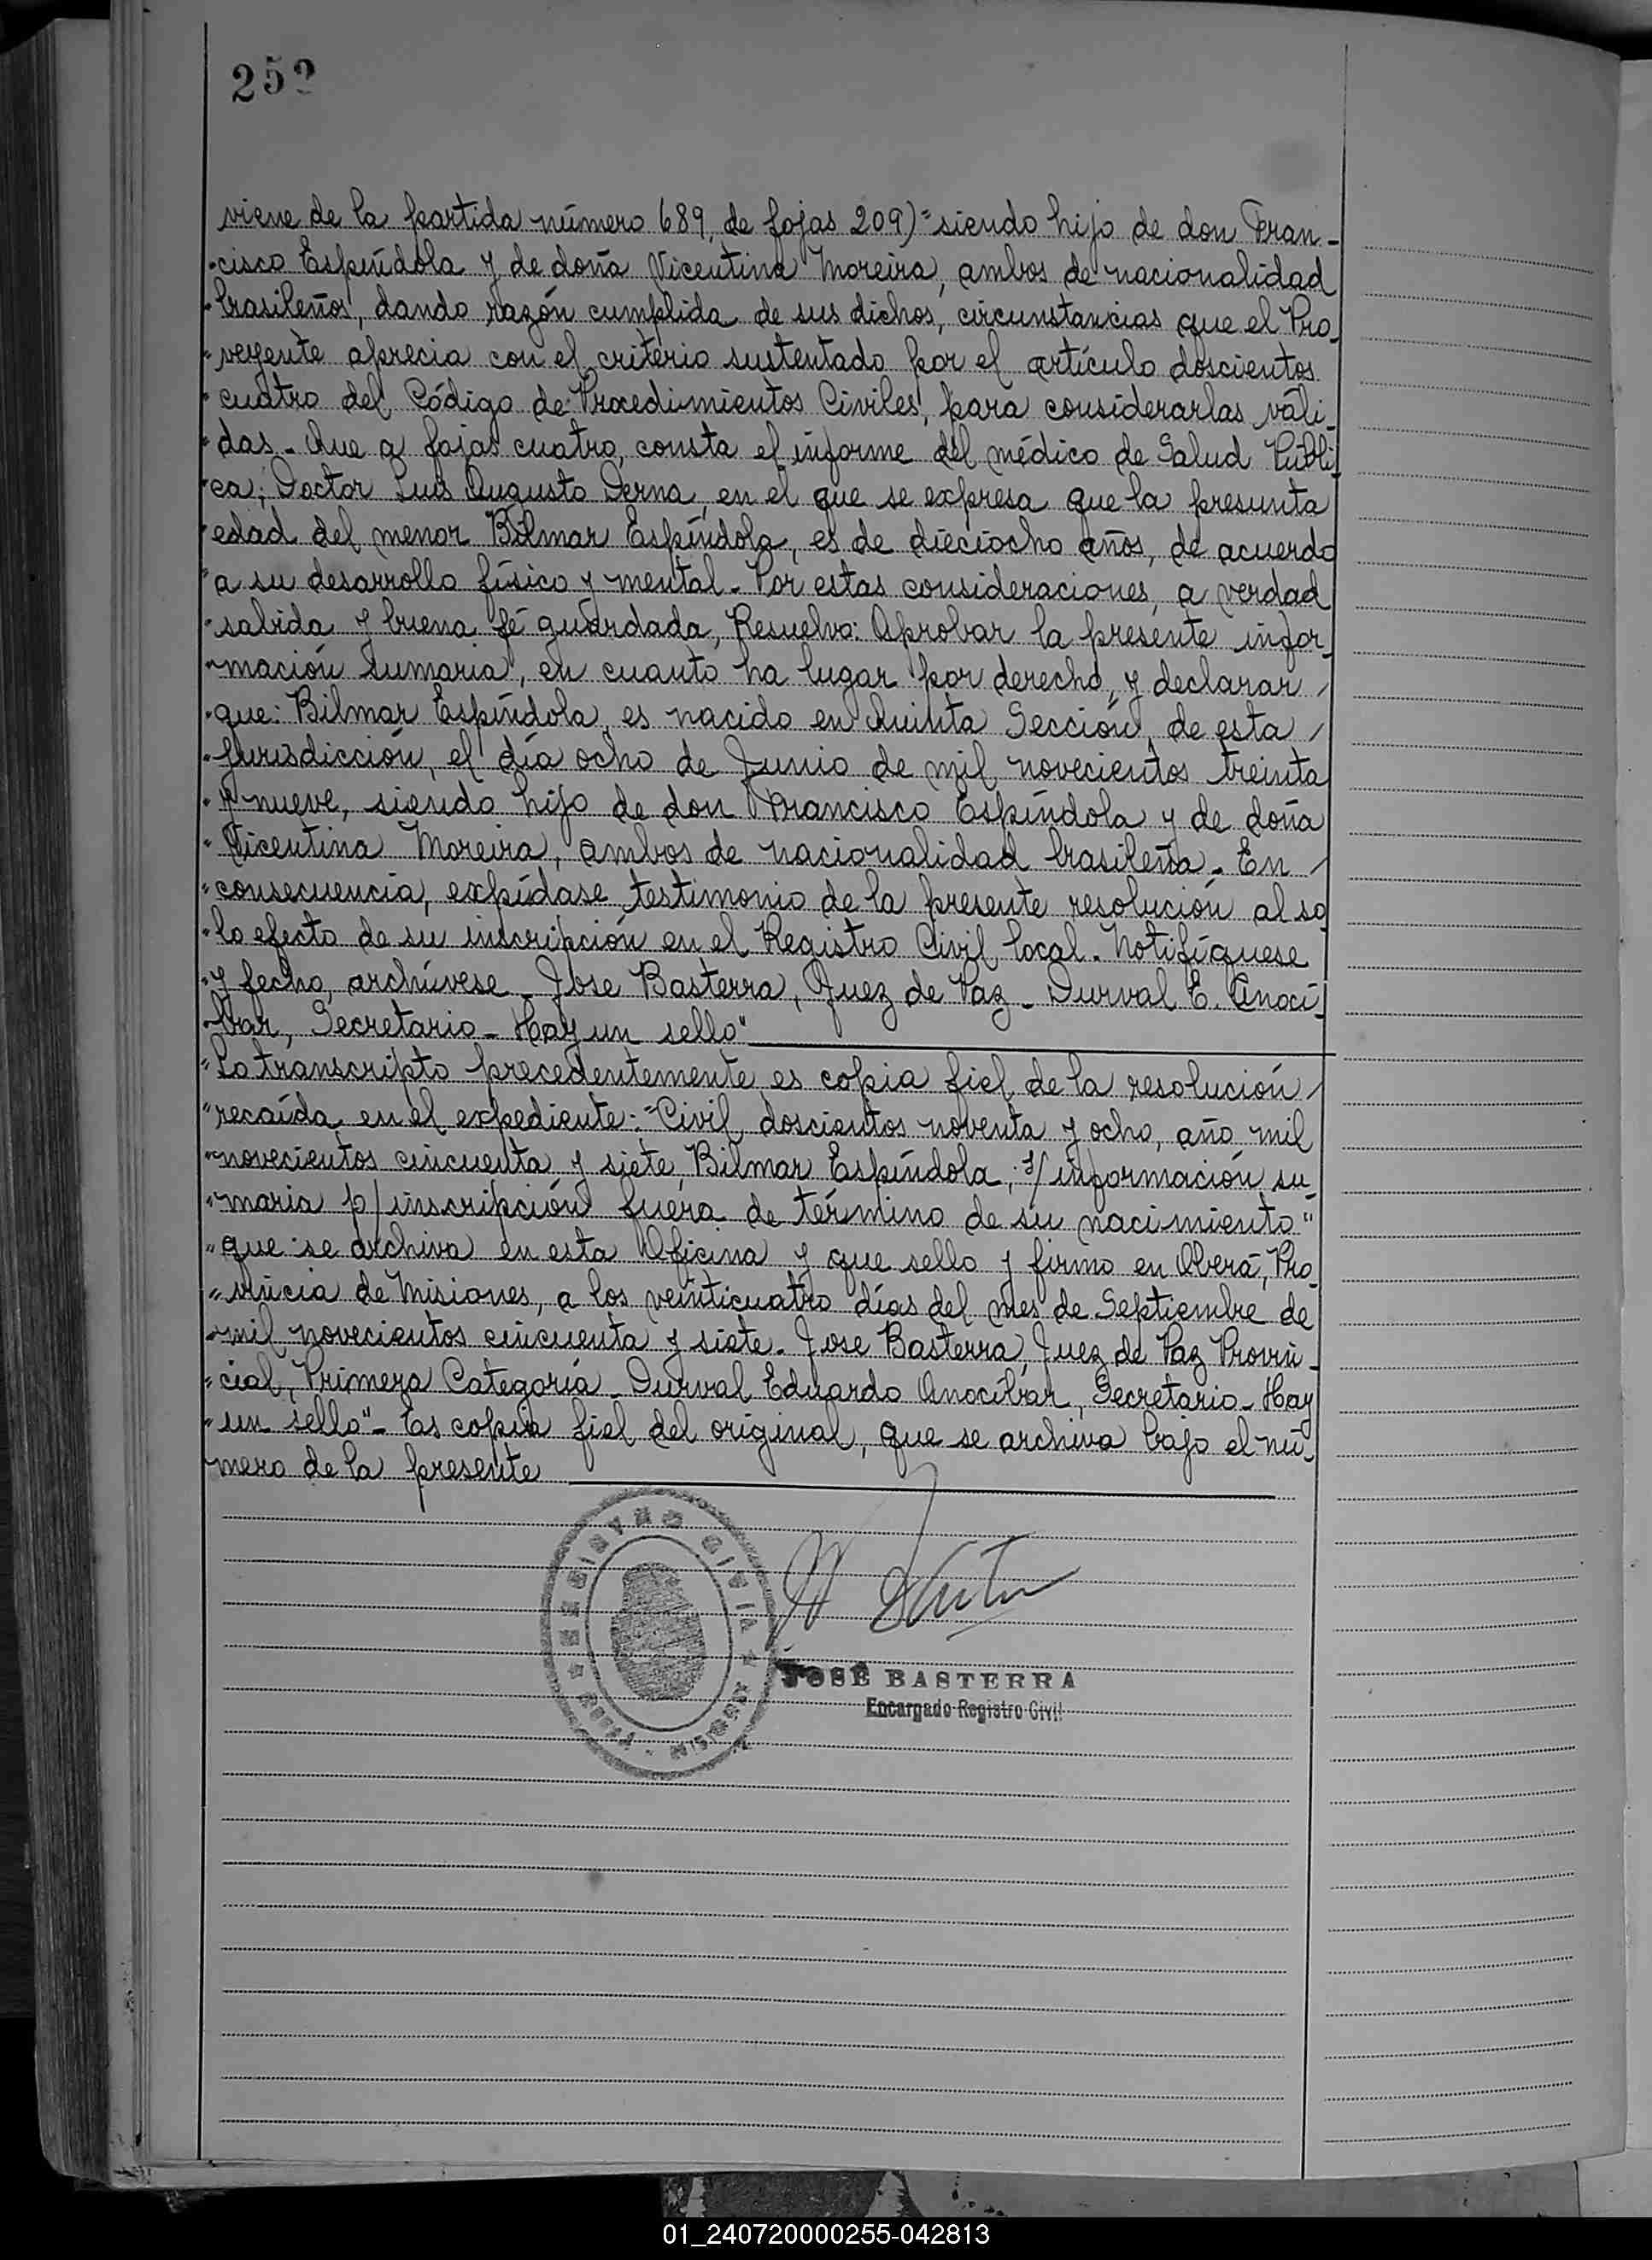 252
viene de la partida número 689, de fojas 209)="siendo hijo de don Fran-
"cisco Espíndola y de doña Vicentina Moreira, ambos de nacionalidad
"brasileños, dando razón cumplida de sus dichos, circunstancias que el Pro-
"veyente aprecia con el criterio sustentado por el artículo doscientos
"cuatro del Código de Procedimientos Civiles, para considerarlas váli-
"das.- Que a fojas cuatro, consta el informe del médico de Salud Públi-
"ca; Doctor Luis Augusto Derna, en el que se expresa que la presunta
"edad del menor Bilmar Espíndola, es de dieciocho años, de acuerdo
"a su desarrollo físico y mental.- Por estas consideraciones, a verdad
"sabida y buena fé guardada, Resuelvo: Aprobar la presente infor-
"mación sumaria, en cuanto ha lugar por derecho, y declarar /
"que: Bilmar Espíndola, es nacido en Quinta Sección, de esta /
"jurisdicción, el día ocho de Junio de mil novecientos treinta
"y nueve, siendo hijo de don Francisco Espíndola y de doña
"Vicentina Moreira, ambos de nacionalidad brasileña.- En /
"consecuencia, expídase testimonio de la presente resolución al so
"lo efecto de su inscripción en el Registro Civil local. Notifíquese
"y fecho, archívese.- Jose Basterra, Juez de Paz.- Durval E. Anocí-
"bar, Secretario.- Hay un sello"
"Lo transcripto precedentemente es copia fiel de la resolución /
"recaída en el expediente:-"Civil doscientos noventa y ocho, año mil
"novecientos cincuenta y siete, Bilmar Espíndola, s/información su-
"maria p/inscripción fuera de término de su nacimiento"
"que se archiva en esta Oficina y que sello y firmo en Oberá, Pro-
"vincia de Misiones, a los veinticuatro días del mes de Septiembre de
"mil novecientos cincuenta y siete.- Jose Basterra, Juez de Paz Provin-
"cial, Primera Categoría.- Durval Eduardo Anocíbar, Secretario.- Hay
"un sello".- Es copia fiel del original, que se archiva bajo el nú-
mero de la presente
REGISTRO CIVIL
OBERÁ - MISIONES
JOSÉ BASTERRA
Encargado Registro Civil
01_240720000255-042813